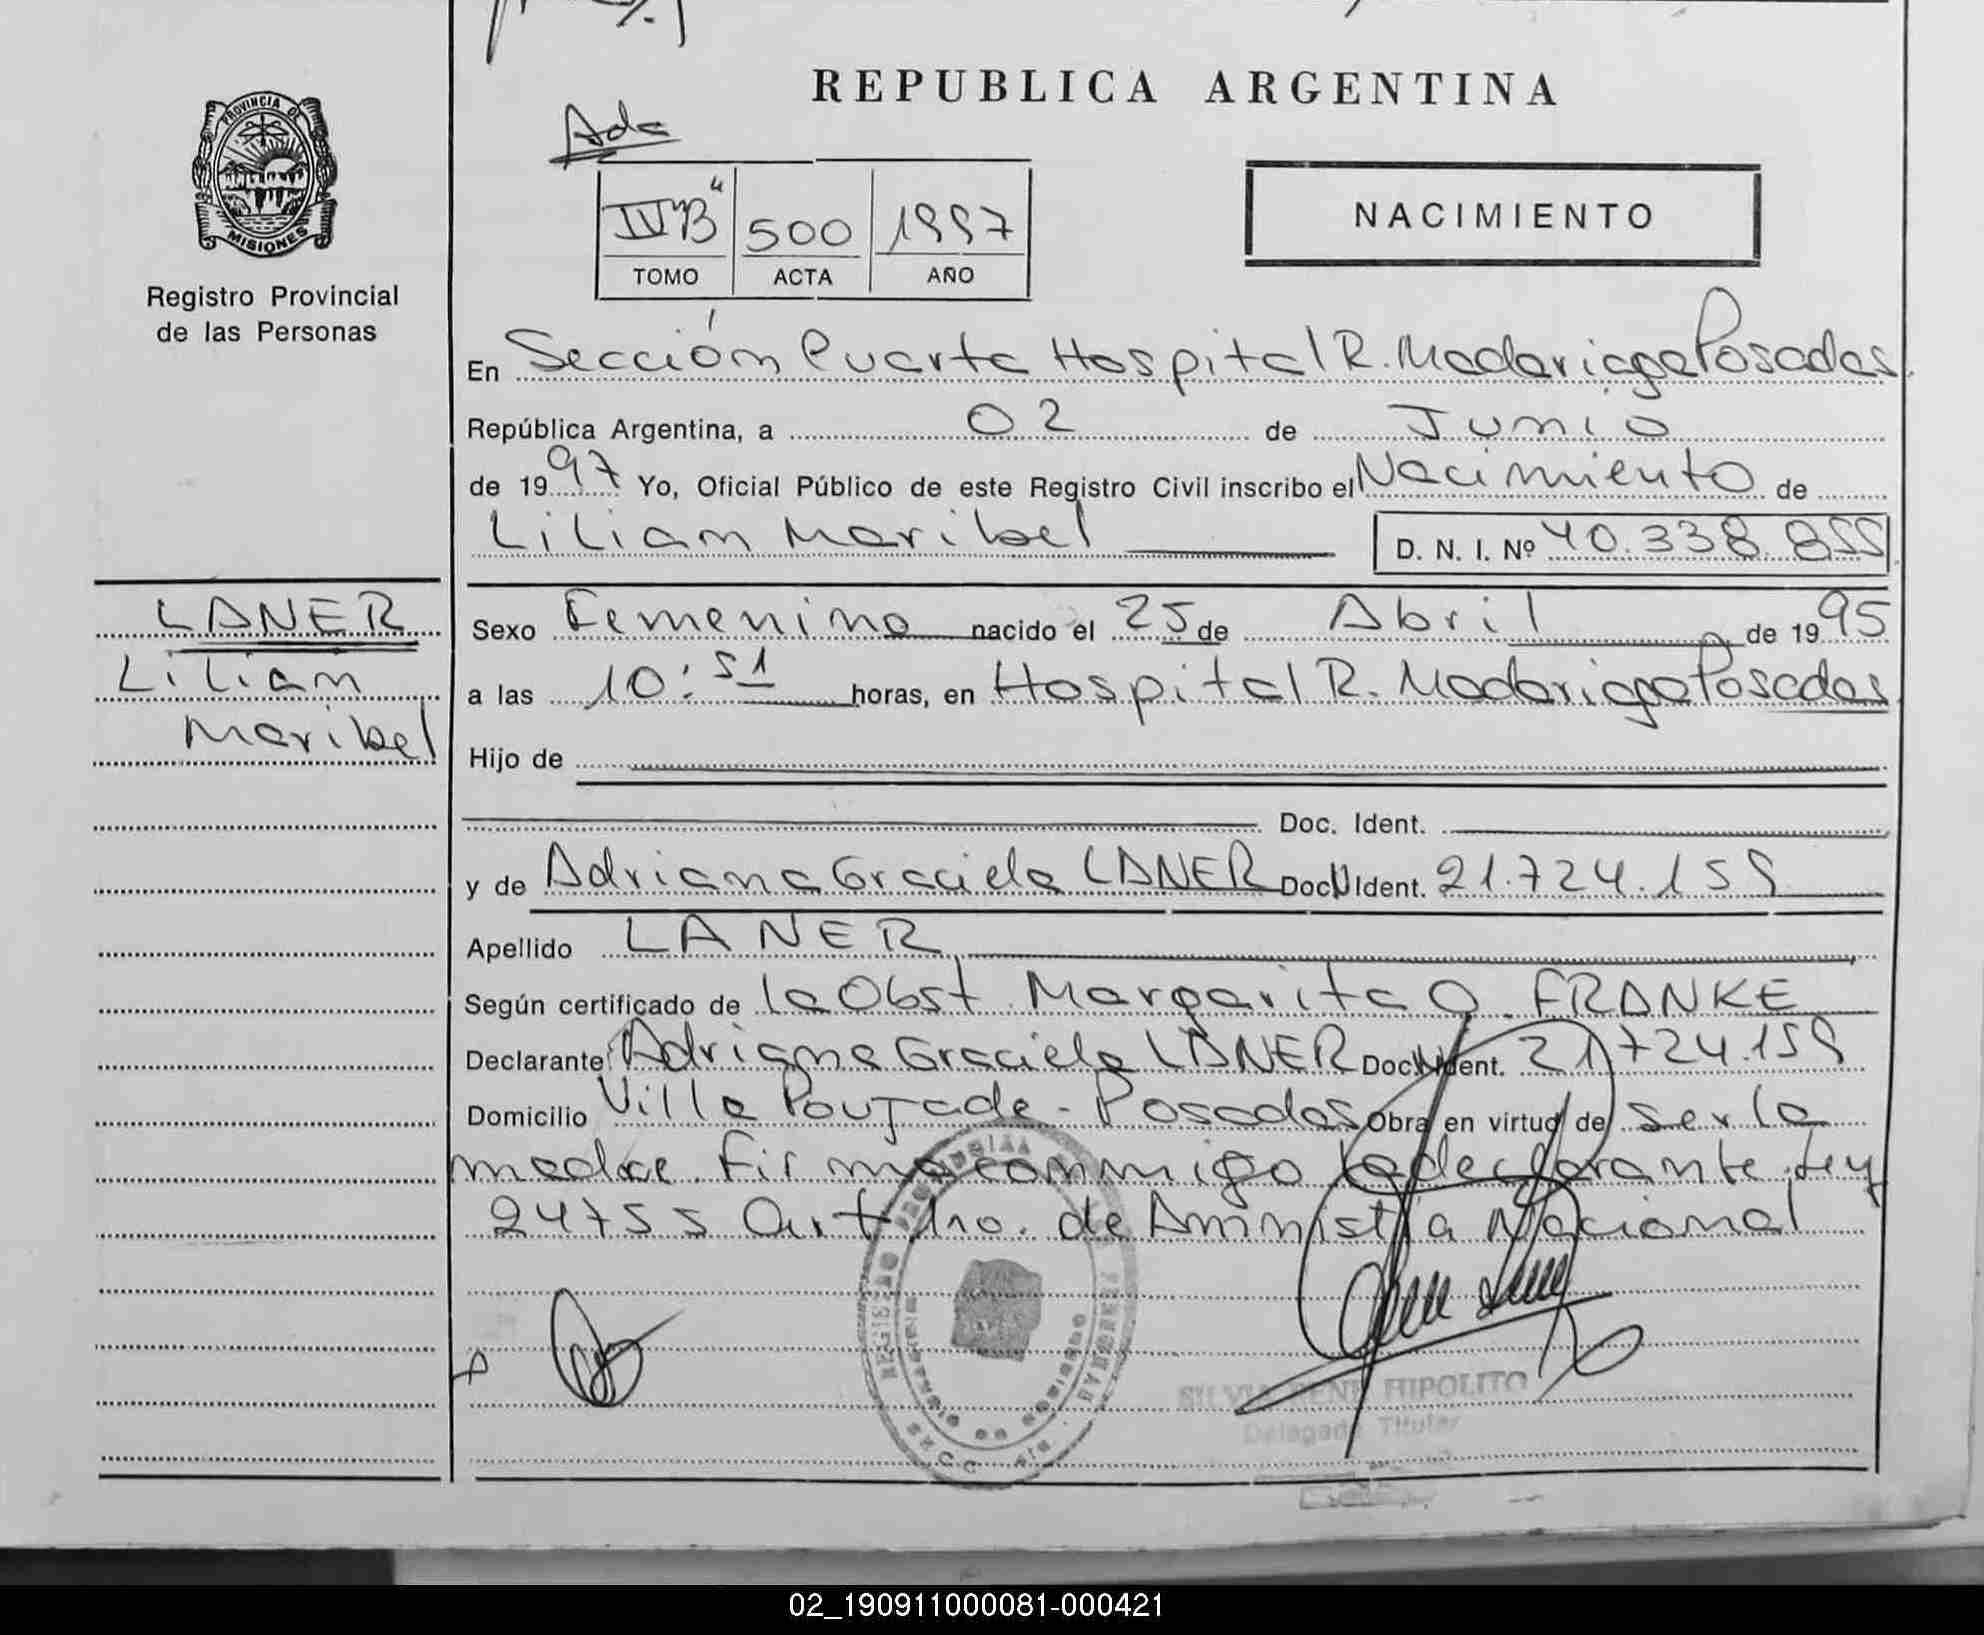 REPUBLICA ARGENTINA
PROVINCIA DE
MISIONES
Registro Provincial
de las Personas
Ada
IV"B" 500 1997
TOMO ACTA AÑO
NACIMIENTO
En Sección Cuarta Hospital R. Madariaga Posadas.
República Argentina, a 02 de Junio
de 1997 Yo, Oficial Público de este Registro Civil inscribo el Nacimiento de
Liliam Maribel D. N. I. Nº 40.338.855
LANER
Liliam
Maribel
Sexo Femenino nacido el 25 de Abril de 1995
a las 10:51 horas, en Hospital R. Madariaga Posadas
Hijo de
Doc. Ident.
y de Adriana Graciela LANER Doc. N Ident. 21.724.159
Apellido LANER
Según certificado de la Obst. Margarita O. FRANKE
Declarante Adriana Graciela LANER Doc. N Ident. 21.724.159
Domicilio Villa Poujade - Posadas Obra en virtud de ser la
madre. Firma conmigo la declarante. Ley
24755 Art 1ro. de Amnistía Nacional
SILVIA RENE HIPOLITO
Delegada Titular
02_190911000081-000421